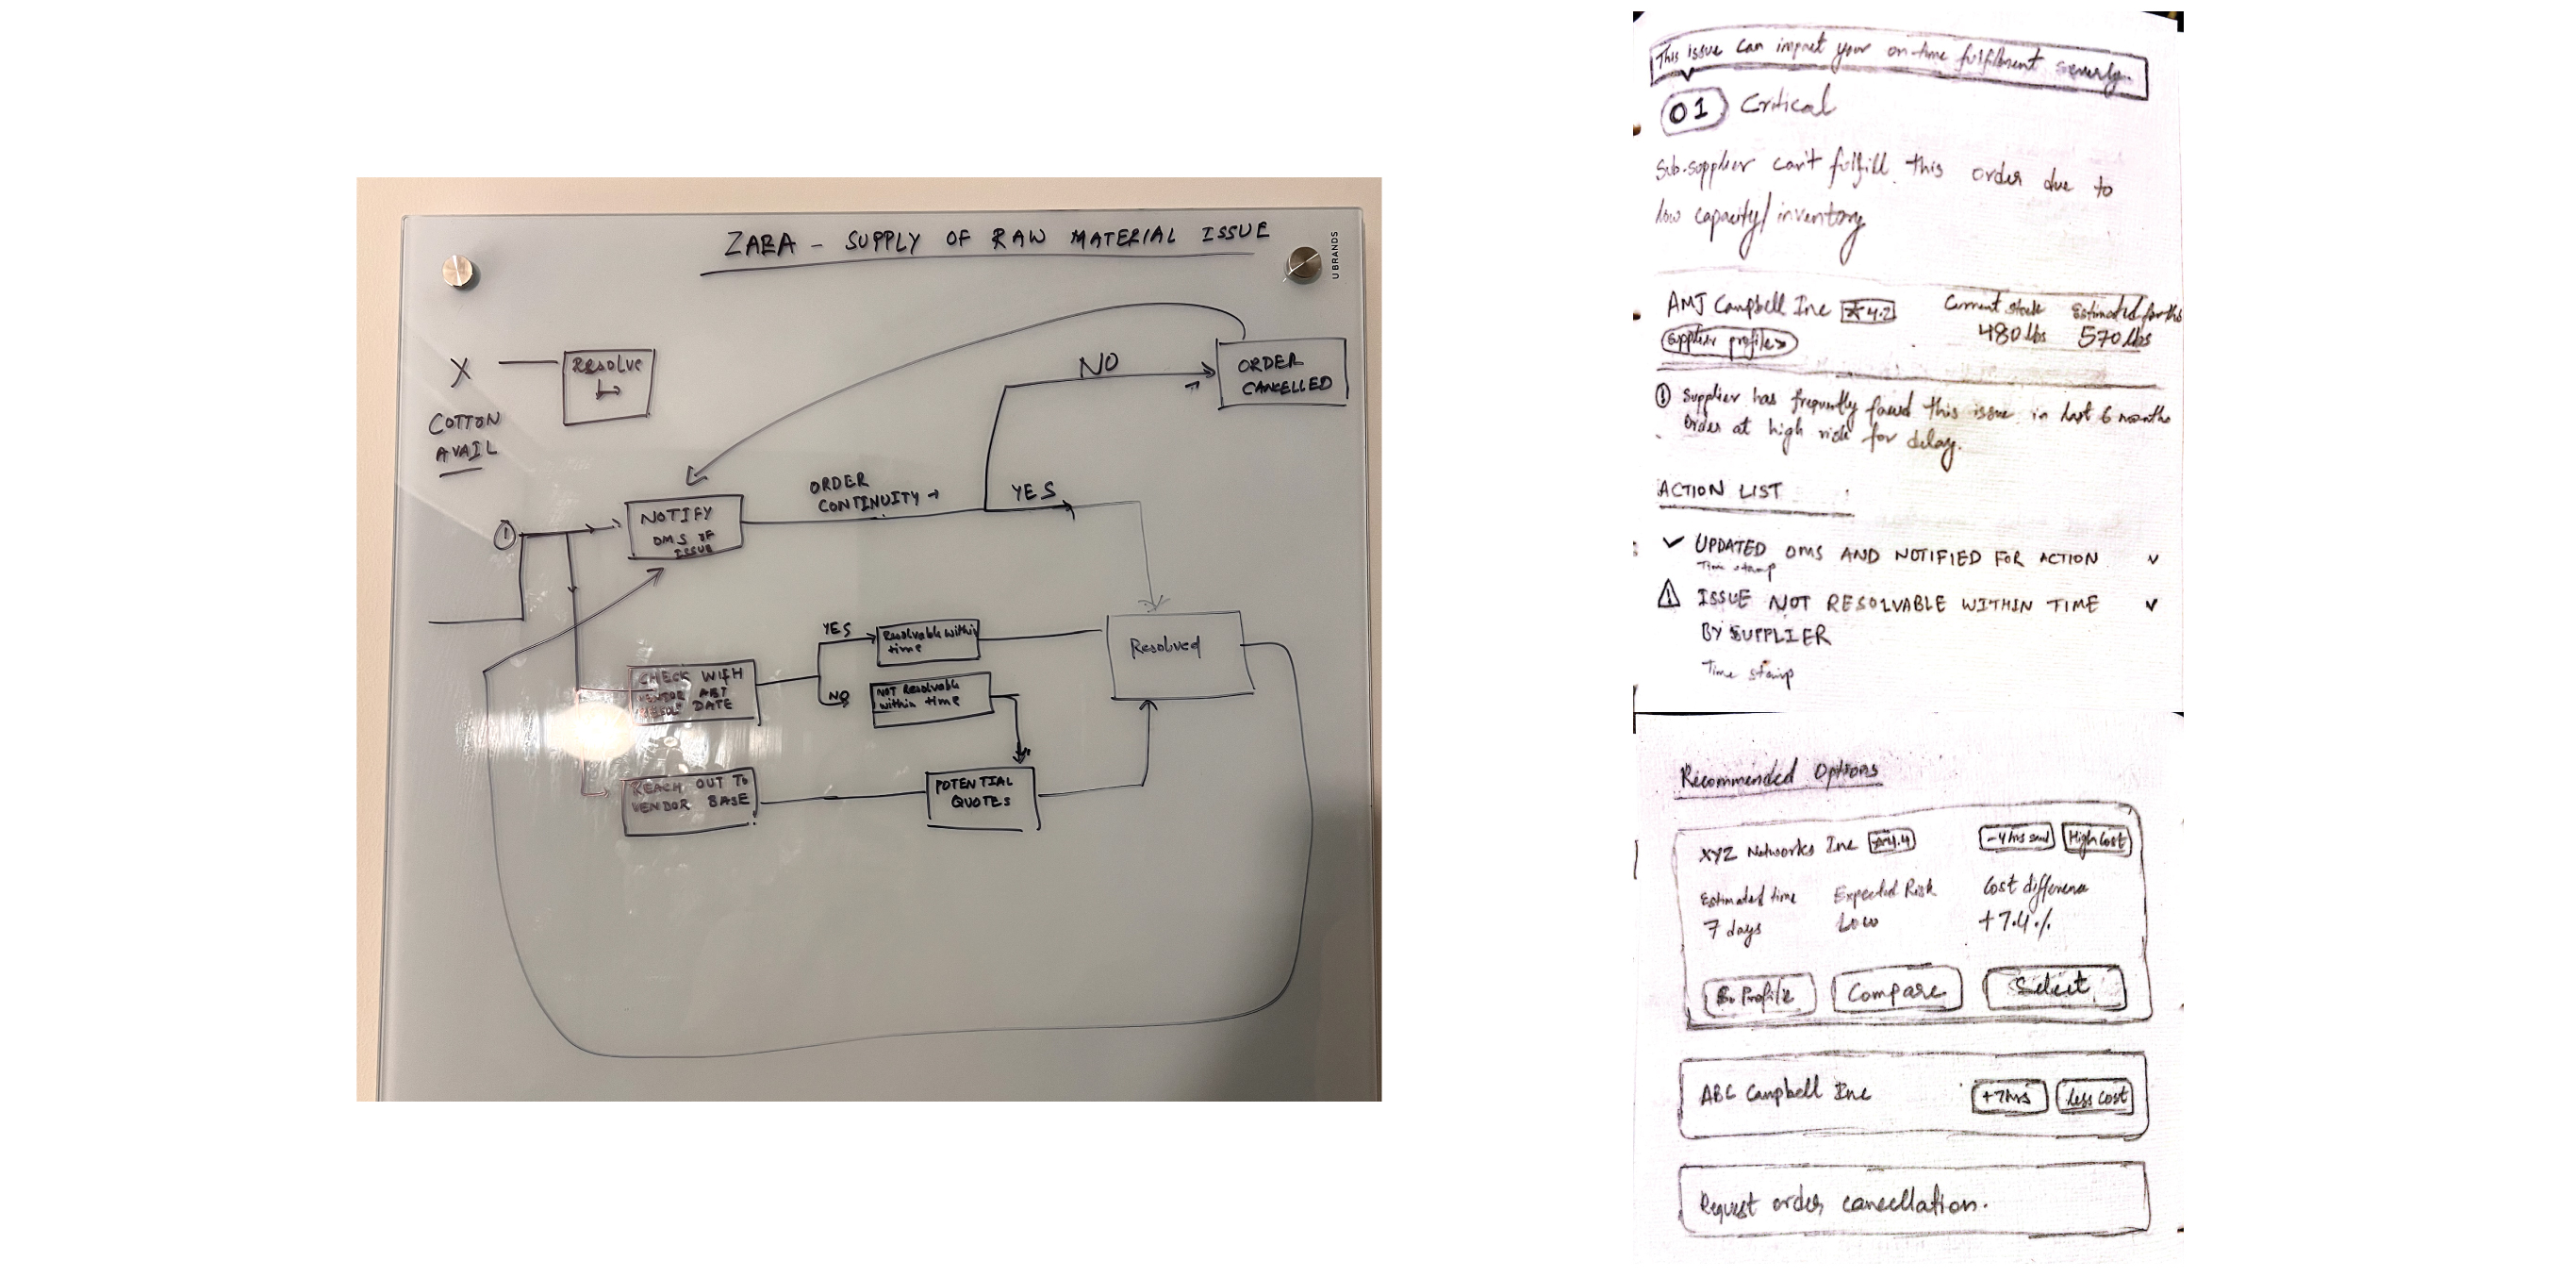 ZARA - SUPPLY OF RAW MATERIAL ISSUE
U BRANDS
X
RESOLVE
COTTON
AVAIL
NO
ORDER
CANCELLED
ORDER
CONTINUITY →
YES
①
NOTIFY
OMS OF
ISSUE
YES
Resolvable within
time
NO
NOT Resolvable
within time
Resolved
CHECK WITH
VENDOR ABT
DATE
REACH OUT TO
VENDOR BASE
POTENTIAL
QUOTES
This issue can impact your on-time fulfilment severly.
01 Critical
Sub-supplier can't fulfill this order due to
low capacity/inventory
AMJ Campbell Inc ★4.2
Current stock
Estimated for this
Supplier profile >
480 lbs
570 lbs
Supplier has frequently faced this issue in last 6 months
Order at high risk for delay.
ACTION LIST
✓ UPDATED OMS AND NOTIFIED FOR ACTION
Time stamp
⚠ ISSUE NOT RESOLVABLE WITHIN TIME
BY SUPPLIER
Time stamp
Recommended Options
XYZ Networks Inc ★4.4
-4 hrs
High Cost
Estimated time
Expected Risk
Cost difference
7 days
Low
+7.4%
Profile
Compare
Select
ABC Campbell Inc
+7hrs
Less cost
Request order cancellation.